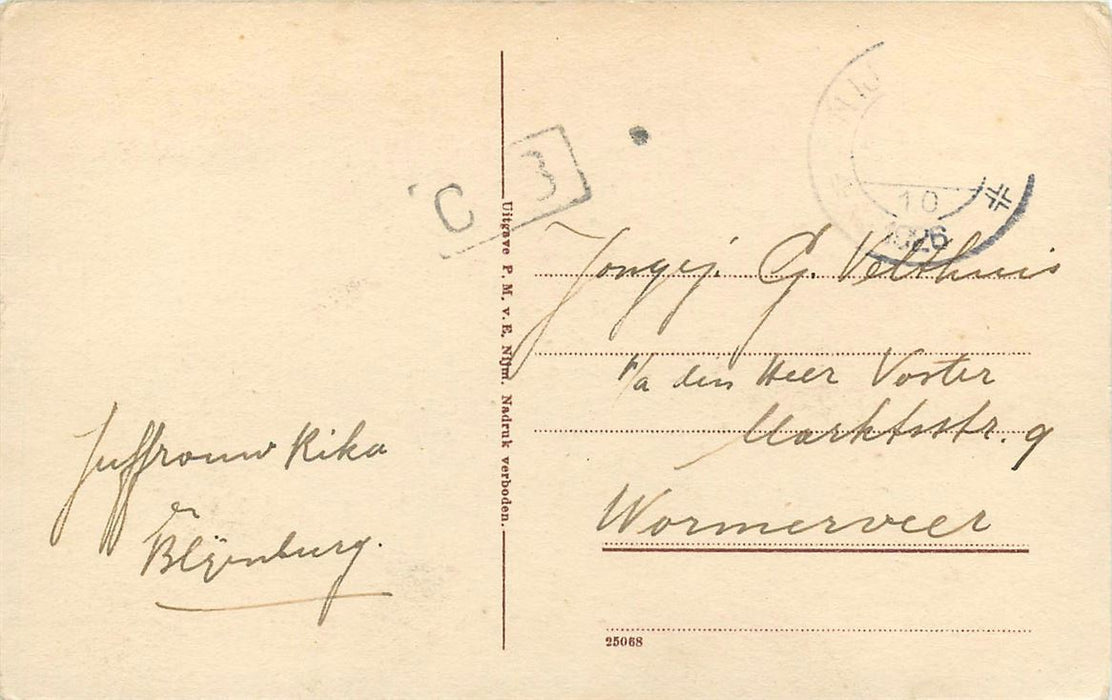 C 3
10
1926
Uitgave P. M. v. E. Nijm. Nadruk verboden.
Juffrouw Rika
en
Blijenburg.
Jongej. G. Velthuis
p/a den Heer Voster
Marktstr. 9
Wormerveer
25068